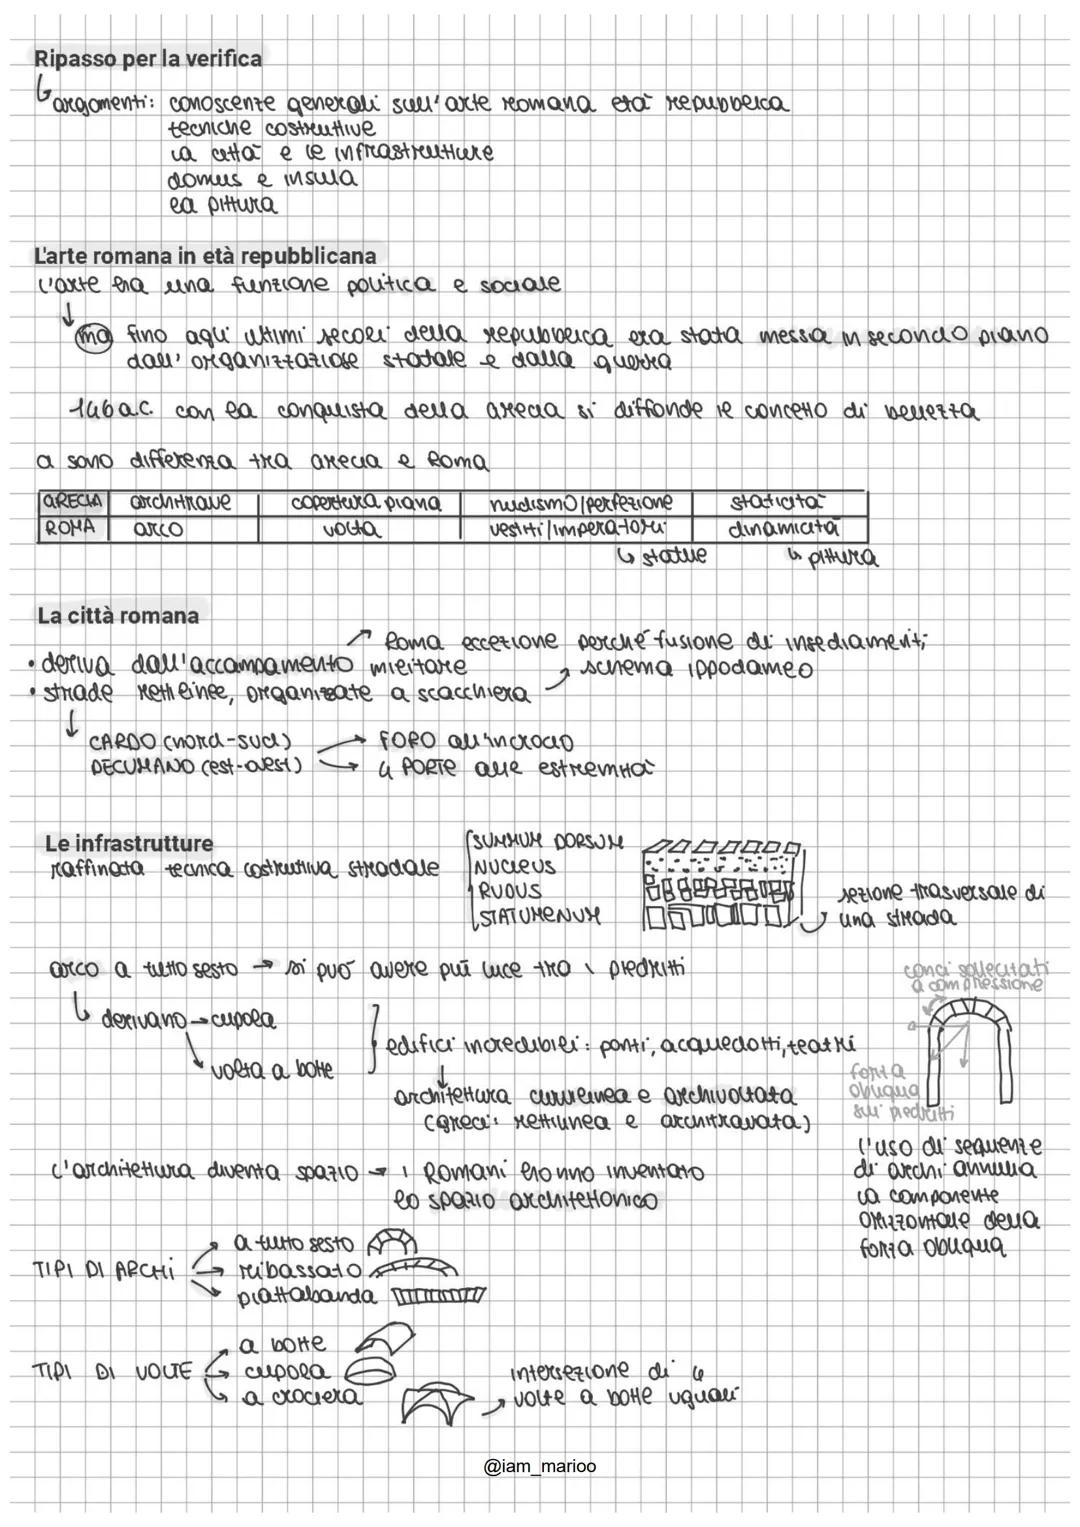 Ripasso per la verifica
argomenti: conoscenze generali sull'arte romana età repubblica
tecniche costruttive
la città e le infrastrutture
domus e insula
la pittura
L'arte romana in età repubblicana
L'arte ha una funzione politica e sociale
ma fino agli ultimi secoli della repubblica era stata messa in secondo piano
dall'organizzazione statale e dalla guerra
146 a.C. con la conquista della Grecia si diffonde il concetto di bellezza
ci sono differenza tra Grecia e Roma
GRECIA architrave copertura piana nudismo/perfezione staticità
ROMA arco volta vestiti/imperatori dinamicità
statue pittura
La città romana
Roma eccezione perché fusione di insediamenti
• deriva dall'accampamento militare
schema ippodameo
• strade rettilinee, organizzate a scacchiera
CARDO (nord-sud) FORO all'incrocio
DECUMANO (est-ovest) 4 PORTE alle estremità
Le infrastrutture
raffinata tecnica costruttiva stradale
SUMMUM DORSUM
NUCLEUS
RUDUS
STATUMENUM
sezione trasversale di
una strada
arco a tutto sesto → si può avere più luce tra i piedritti
conci sollecitati
a compressione
derivano → cupola
volta a botte
edifici incredibili: ponti, acquedotti, teatri
architettura curvilinea e archivoltata
(greci: rettilinea e architravata)
forza
obliqua
sui piedritti
L'uso di sequenze
di archi annulla
la componente
orizzontale della
forza obliqua
L'architettura diventa spazio → i Romani hanno inventato
lo spazio architettonico
TIPI DI ARCHI
a tutto sesto
ribassato
piattabanda
TIPI DI VOLTE
a botte
cupola
a crociera
intersezione di 4
volte a botte uguali
@iam_marioo